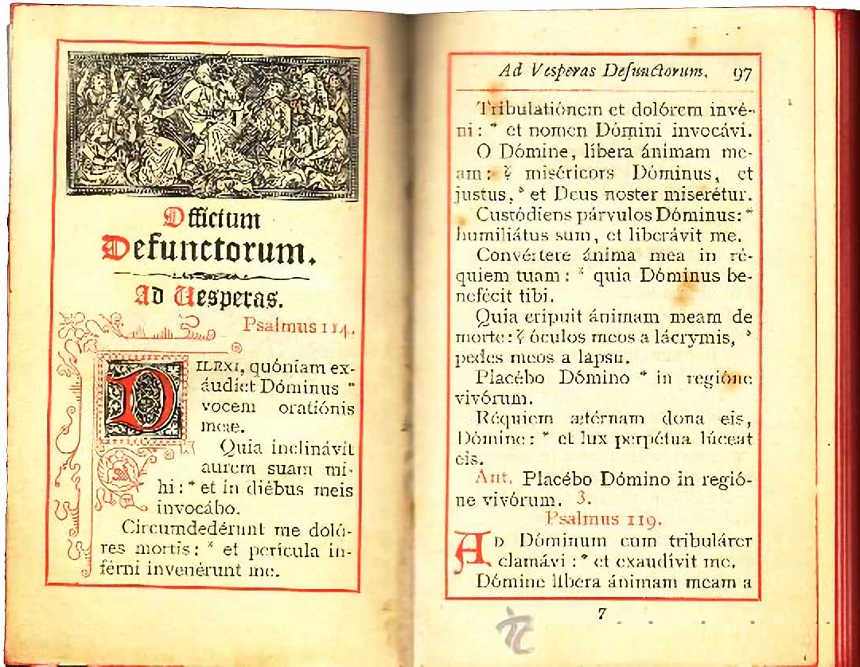 Officium
Defunctorum.
Ad Vesperas.
Psalmus 114.
DILEXI, quóniam ex-
áudiet Dóminus *
vocem oratiónis
meæ.
Quia inclinávit
aurem suam mi-
hi : * et in diébus meis
invocábo.
Circumdedérunt me doló-
res mortis : * et perícula in-
férni invenérunt me.
Ad Vesperas Defunctorum. 97
Tribulatiónem et dolórem invé-
ni : * et nomen Dómini invocávi.
O Dómine, líbera ánimam me-
am : * miséricors Dóminus, et
justus, * et Deus noster miserétur.
Custódiens párvulos Dóminus : *
humiliátus sum, et liberávit me.
Convértere ánima mea in ré-
quiem tuam : * quia Dóminus be-
nefécit tibi.
Quia erípuit ánimam meam de
morte : * óculos meos a lácrymis, *
pedes meos a lapsu.
Placébo Dómino * in regióne
vivórum.
Réquiem ætérnam dona eis,
Dómine : * et lux perpétua lúceat
eis.
Ant. Placébo Dómino in regió-
ne vivórum. 3.
Psalmus 119.
AD Dóminum cum tribulárer
clamávi : * et exaudívit me.
Dómine líbera ánimam meam a
7